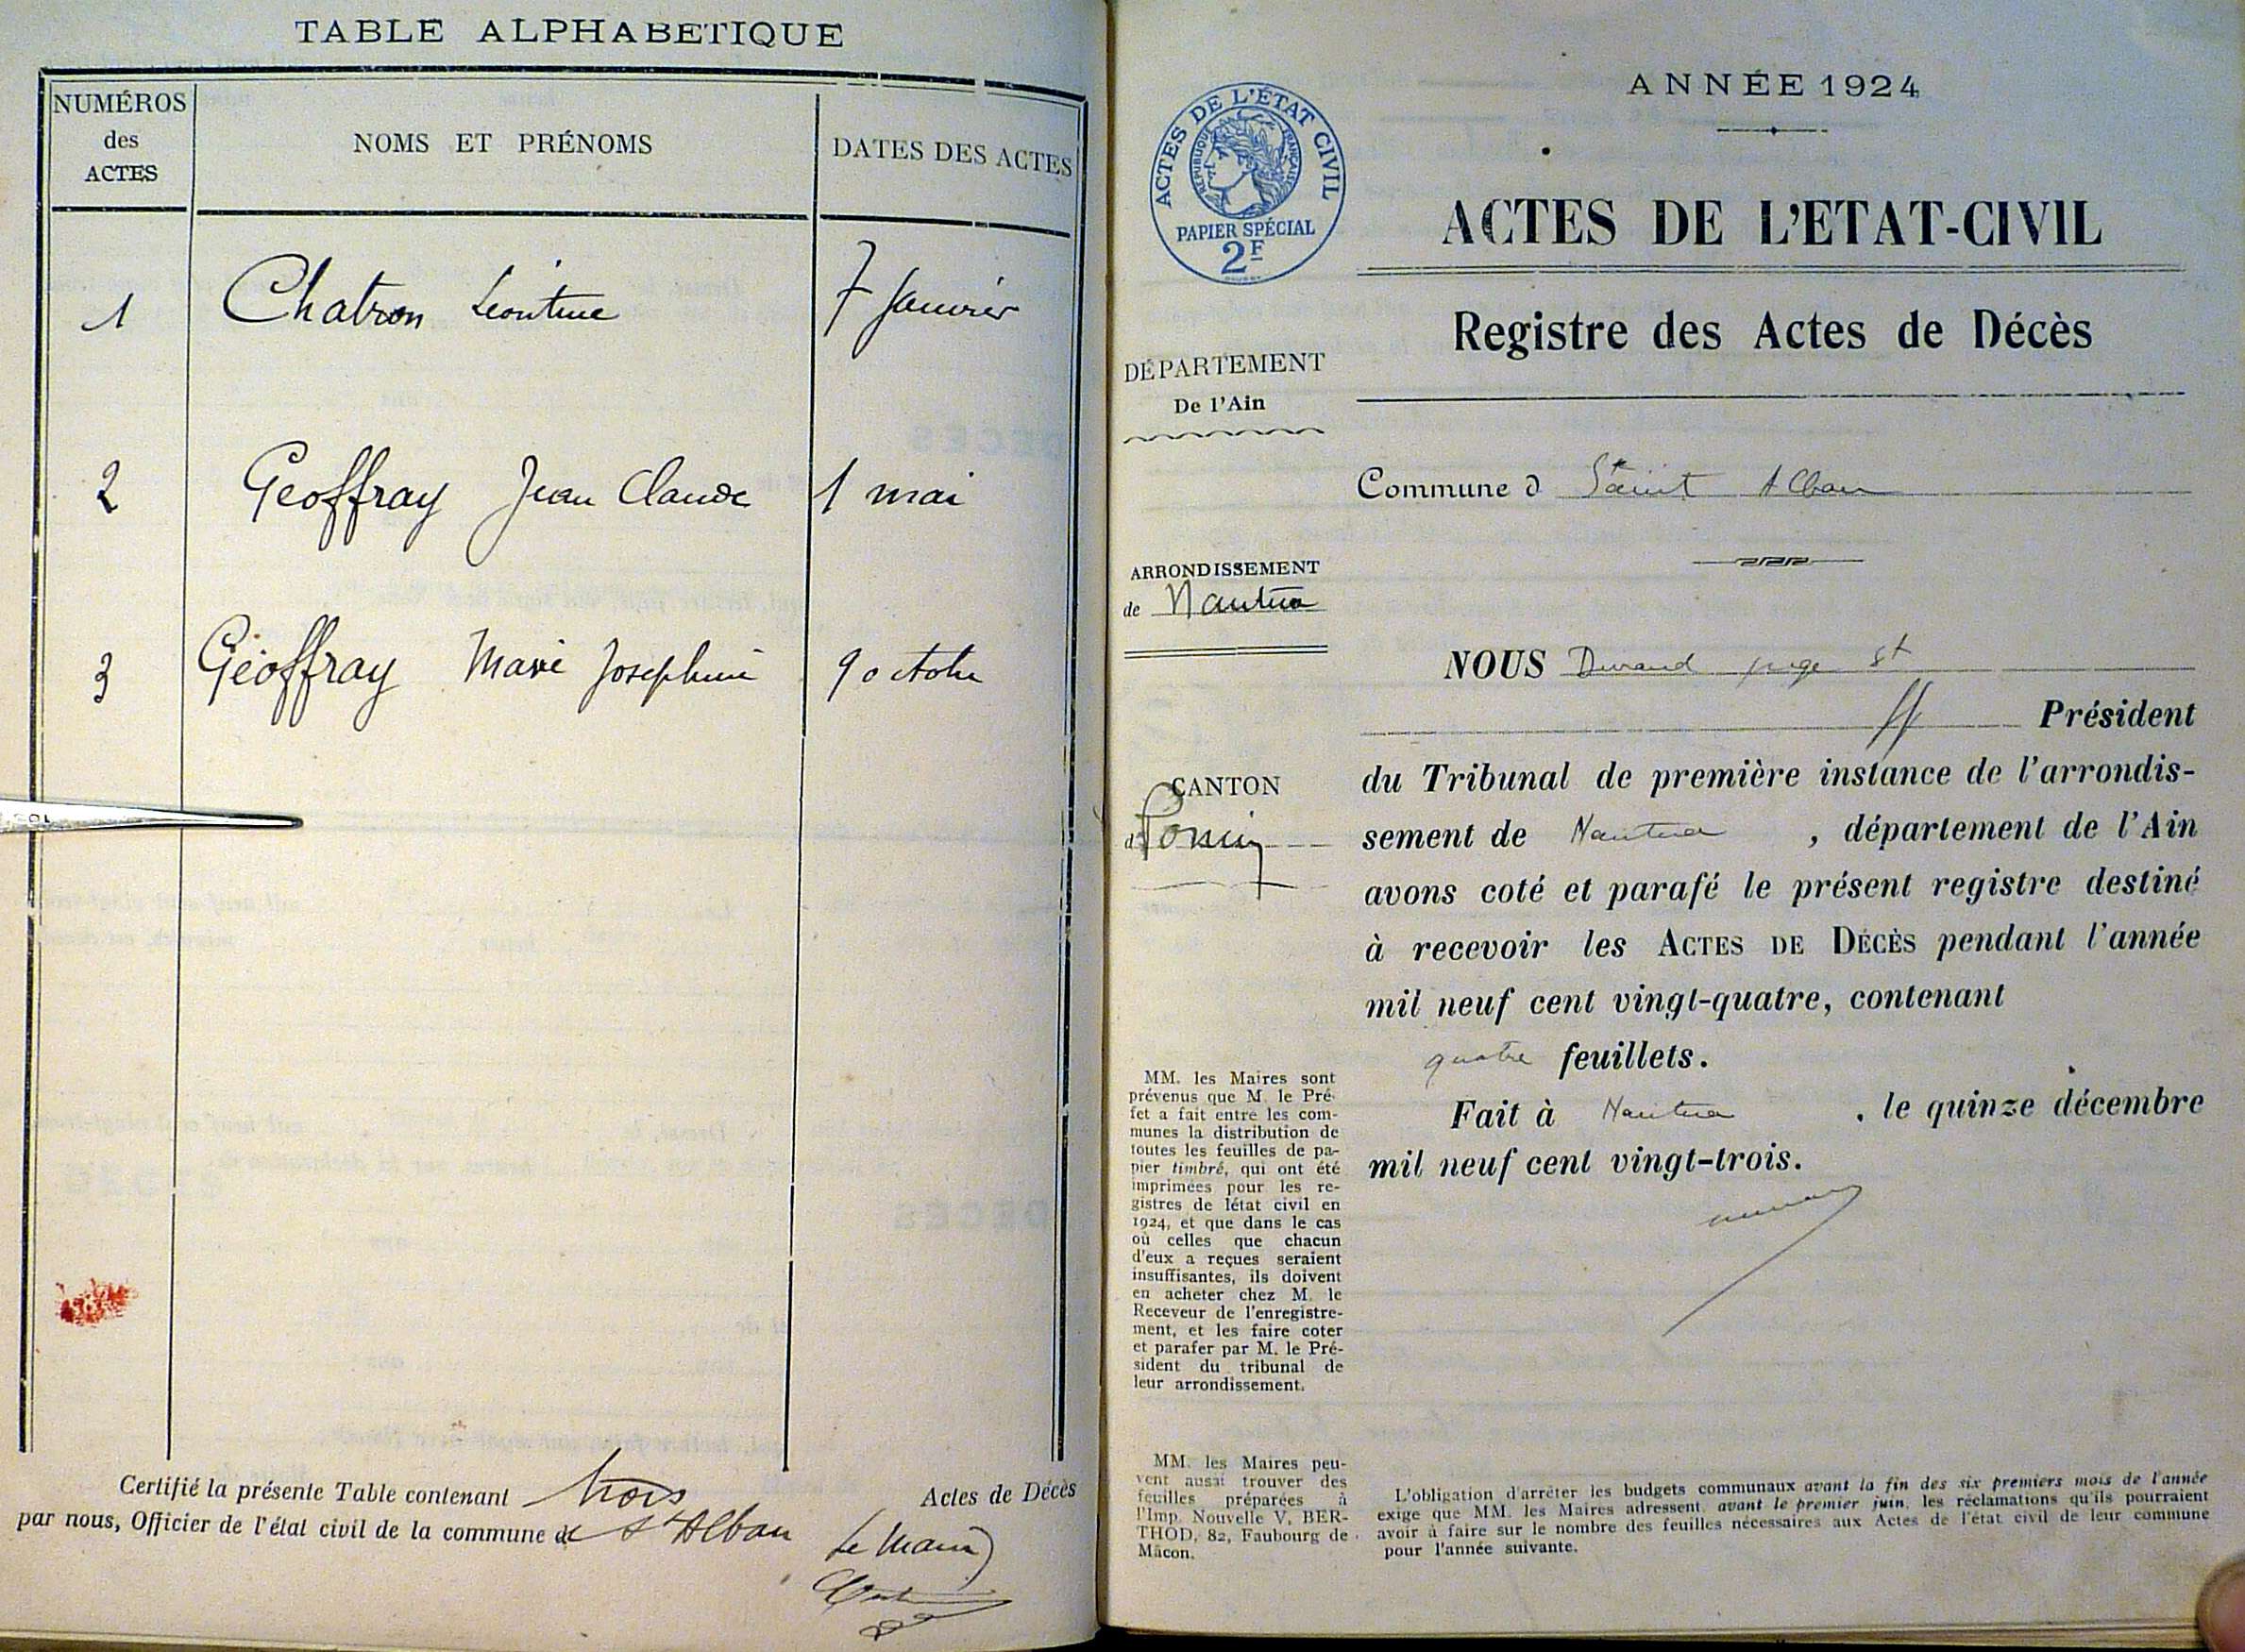 TABLE ALPHABETIQUE
NUMÉROS
des
ACTES
NOMS ET PRÉNOMS
DATES DES ACTES
1 Chatron Léontine 7 Janvier
2 Geoffray Jean Claude 1 mai
3 Géoffray Marie Josephine 9 octobre
Certifié la présente Table contenant trois Actes de Décès
par nous, Officier de l'état civil de la commune de St Alban
Le Maire
ANNÉE 1924
ACTES DE L'ÉTAT CIVIL
RÉPUBLIQUE FRANÇAISE
PAPIER SPÉCIAL
2F
ACTES DE L'ETAT-CIVIL
Registre des Actes de Décès
DÉPARTEMENT
De l'Ain
Commune d Saint Alban
ARRONDISSEMENT
de Nantua
CANTON
d Poncin
NOUS Durand juge st
ff Président
du Tribunal de première instance de l'arrondis-
sement de Nantua , département de l'Ain
avons coté et parafé le présent registre destiné
à recevoir les ACTES DE DÉCÈS pendant l'année
mil neuf cent vingt-quatre, contenant
quatre feuillets.
Fait à Nantua , le quinze décembre
mil neuf cent vingt-trois.
MM. les Maires sont
prévenus que M. le Pré-
fet a fait entre les com-
munes la distribution de
toutes les feuilles de pa-
pier timbré, qui ont été
imprimées pour les re-
gistres de létat civil en
1924, et que dans le cas
où celles que chacun
d'eux a reçues seraient
insuffisantes, ils doivent
en acheter chez M. le
Receveur de l'enregistre-
ment, et les faire coter
et parafer par M. le Pré-
sident du tribunal de
leur arrondissement.
MM. les Maires peu-
vent aussi trouver des
feuilles préparées à
l'Imp. Nouvelle V. BER-
THOD, 82, Faubourg de
Mâcon.
L'obligation d'arrêter les budgets communaux avant la fin des six premiers mois de l'année
exige que MM. les Maires adressent, avant le premier juin, les réclamations qu'ils pourraient
avoir à faire sur le nombre des feuilles nécessaires aux Actes de l'état civil de leur commune
pour l'année suivante.